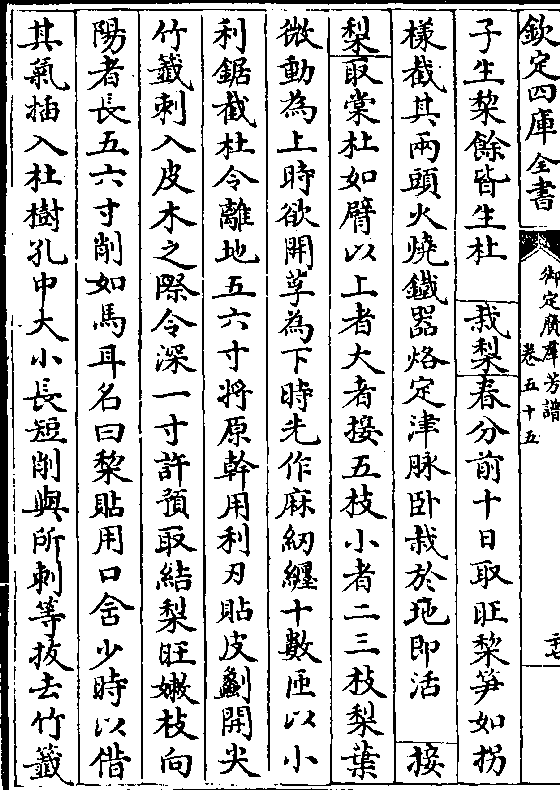 欽定四庫全書
御定廣羣芳譜
卷五十五
子生棃餘皆生杜　栽梨春分前十日取旺棃笋如拐
樣截其兩頭火燒鐵器烙定津脉卧栽於地即活　接
梨取棠杜如臂以上者大者接五枝小者二三枝梨葉
微動為上時欲開莩為下時先作麻紉纏十數匝以小
利鋸截杜令離地五六寸将原幹用利刃貼皮劙開尖
竹籖刺入皮木之際令深一寸許預取結梨旺嫩枝向
陽者長五六寸削如馬耳名曰棃貼用口含少時以借
其氣插入杜樹孔中大小長短削與所刺等拔去竹籖